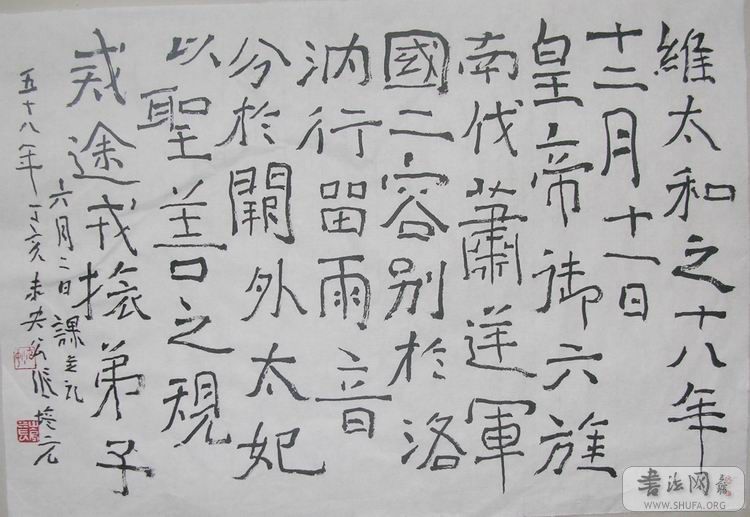 維太和之十八年
十二月十一日
皇帝御六旌
南伐蕭逆軍
國二容别於洛
汭行留兩音
分於闕外太妃
以聖善之規
戒途戎旅弟子
六月二日課
五十八年丁亥未央公張培元
書法网
WWW.SHUFA.ORG